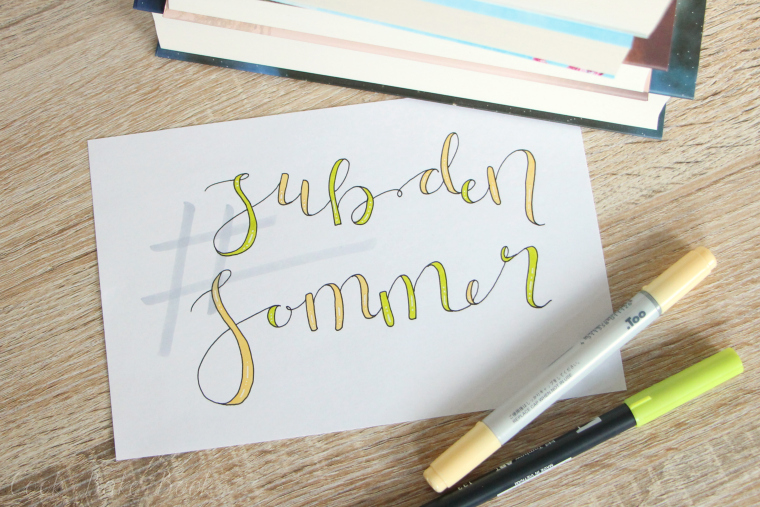 #
subden
sommer
.Too